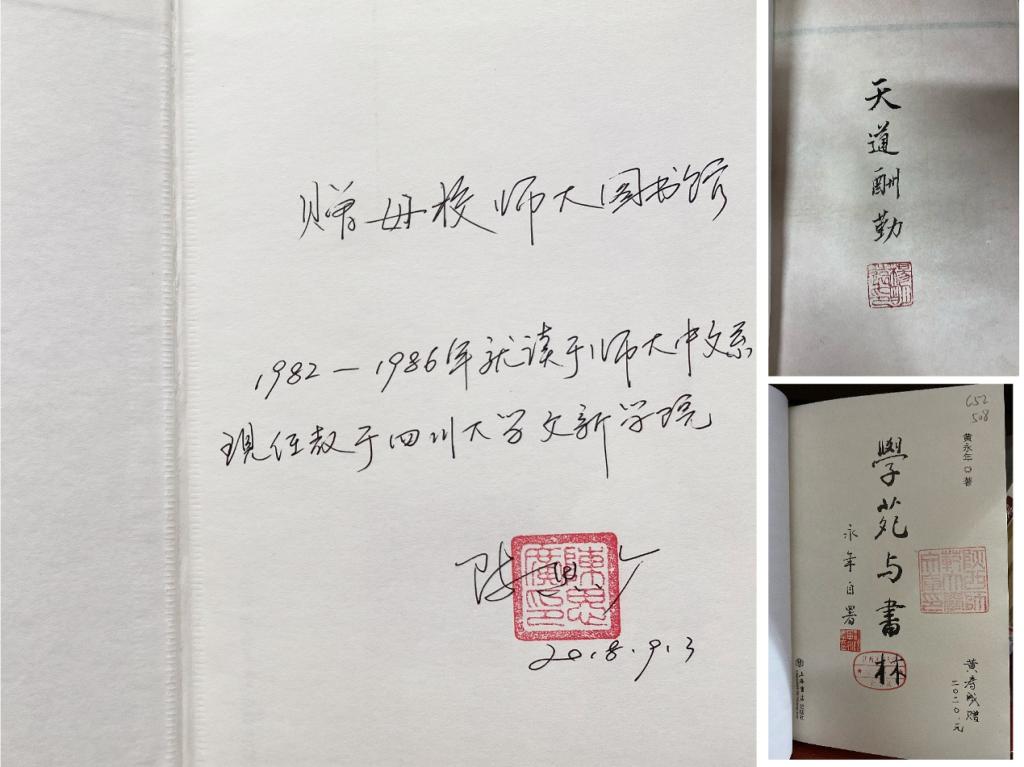 赠母校师大图书馆
1982—1986年就读于师大中文系
现任教于四川大学文新学院
陈思广
陳思廣印
2018.9.3
天道酬勤
652
508
黄永年 著
學苑与書林
永年自署
黄寿成赠
二〇二〇.元
上海書店出版社